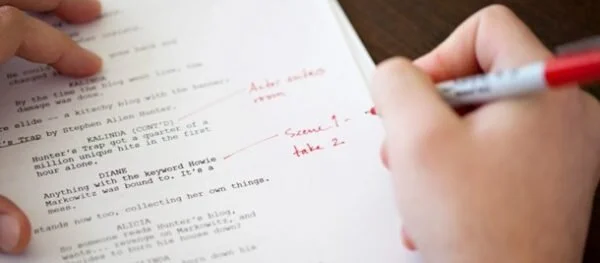 goes back and
He could
changed
KALINDA
By the time the blog went live, the
damage was done.
slide -- a kitschy blog with the banner,
Trap by Stephen Allen Hunter.
Actor enters
room
KALINDA (CONT'D)
Hunter's Trap got a quarter of a
million unique hits in the first
hour alone.
Scene 1 -
take 2
DIANE
Anything with the keyword Howie
Markowitz was bound to. It's a
mess.
stands now too, collecting her own things.
ALICIA
So someone reads Hunter's blog,
wants... revenge on Markowitz, and
decides to burn his house down?
burn down his